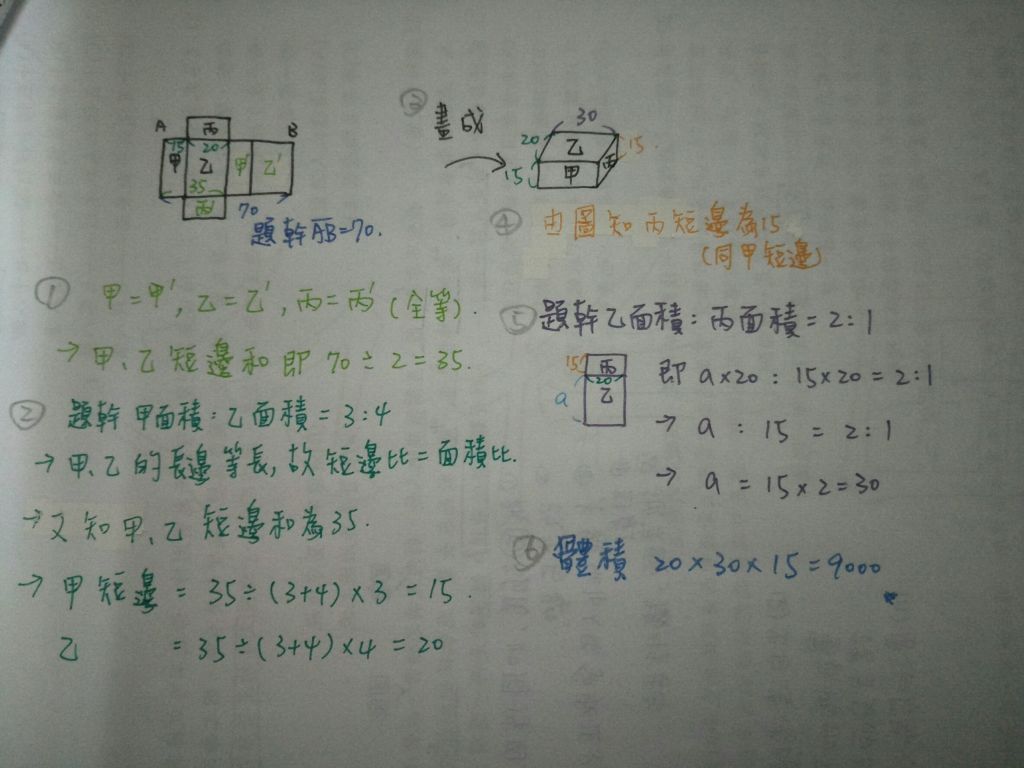 A 丙 B
甲 15 乙 20 甲' 乙'
35
丙' 70
題幹AB=70.
③ 畫成
30
20 乙 15
15 甲 丙
④ 由圖知丙短邊為15
(同甲短邊)
① 甲=甲', 乙=乙', 丙=丙' (全等).
→ 甲、乙短邊和即 70÷2=35.
② 題幹 甲面積:乙面積=3:4
→ 甲、乙的長邊等長,故短邊比=面積比.
→ 又知甲、乙短邊和為35.
→ 甲短邊 = 35÷(3+4)×3=15.
乙 = 35÷(3+4)×4=20
⑤ 題幹乙面積:丙面積=2:1
15 丙
20
a 乙
即 a×20 : 15×20 = 2:1
→ a : 15 = 2:1
→ a = 15×2=30
⑥ 體積 20×30×15=9000